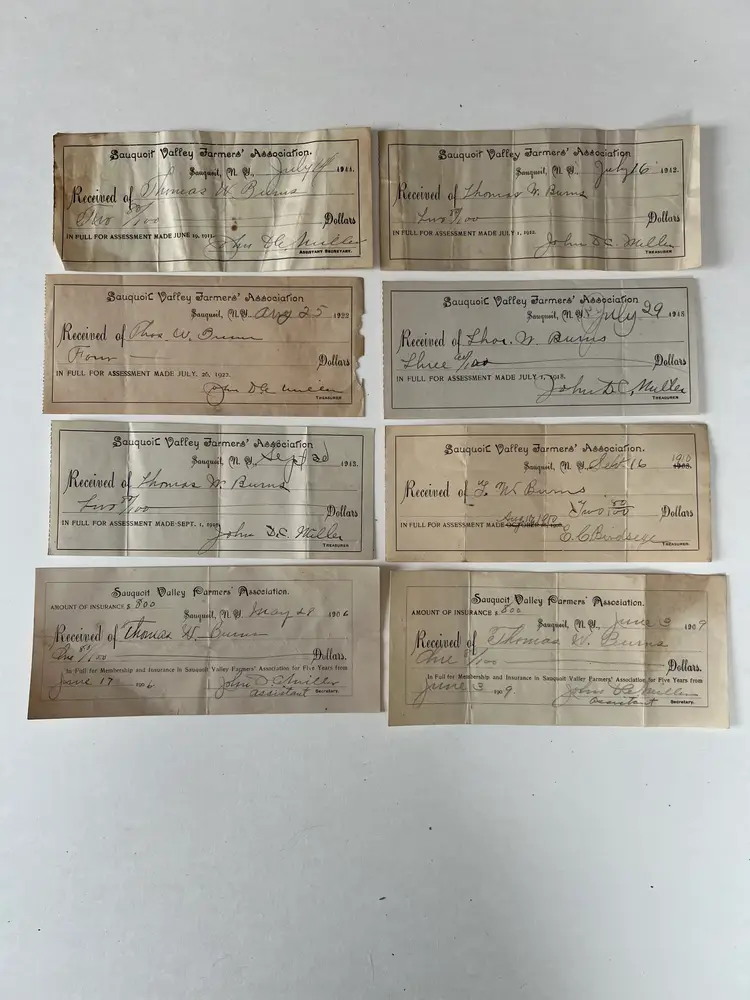 Sauquoit Valley Farmers' Association.
Sauquoit, N. Y., July 1911.
Received of Thomas W. Burns
Two 80/100 Dollars
IN FULL FOR ASSESSMENT MADE JUNE 19, 1911. John D.C. Miller
ASSISTANT SECRETARY.
Sauquoit Valley Farmers' Association.
Sauquoit, N. Y., July 16 1912.
Received of Thomas W. Burns
Two 80/100 Dollars
IN FULL FOR ASSESSMENT MADE JULY 1, 1912. John D.C. Miller
TREASURER
Sauquoit Valley Farmers' Association
Sauquoit, N. Y. Aug 25 1922
Received of Thos. W. Burns
Four Dollars
IN FULL FOR ASSESSMENT MADE JULY, 26, 1922. John D.C. Miller
TREASURER
Sauquoit Valley Farmers' Association
Sauquoit, N. Y. July 29 1918
Received of Thos. W. Burns
Three /100 Dollars
IN FULL FOR ASSESSMENT MADE JULY, 1, 1918. John D.C. Miller
TREASURER
Sauquoit Valley Farmers' Association
Sauquoit, N. Y., Sept 1915.
Received of Thomas W. Burns
Two 80/100 Dollars
IN FULL FOR ASSESSMENT MADE SEPT. 1, 1915 John D.C. Miller
TREASURER
Sauquoit Valley Farmers' Association.
Sauquoit, N. Y., Sept 16 1910
Received of T. W. Burns
Two 80/100 Dollars
IN FULL FOR ASSESSMENT MADE Aug 17, 1910
E. C. Birdseye TREASURER
Sauquoit Valley Farmers' Association.
AMOUNT OF INSURANCE $ 800
Sauquoit, N. Y., May 28 1906
Received of Thomas W. Burns
One 80/100 Dollars.
In Full for Membership and Insurance in Sauquoit Valley Farmers' Association for Five Years from
June 17 1906 John D C Miller
assistant Secretary.
Sauquoit Valley Farmers' Association.
AMOUNT OF INSURANCE $ 800
Sauquoit, N. Y., June 3 1909
Received of Thomas W. Burns
One 80/100 Dollars.
In Full for Membership and Insurance in Sauquoit Valley Farmers' Association for Five Years from
June 3 1909 John D.C. Miller
assistant Secretary.